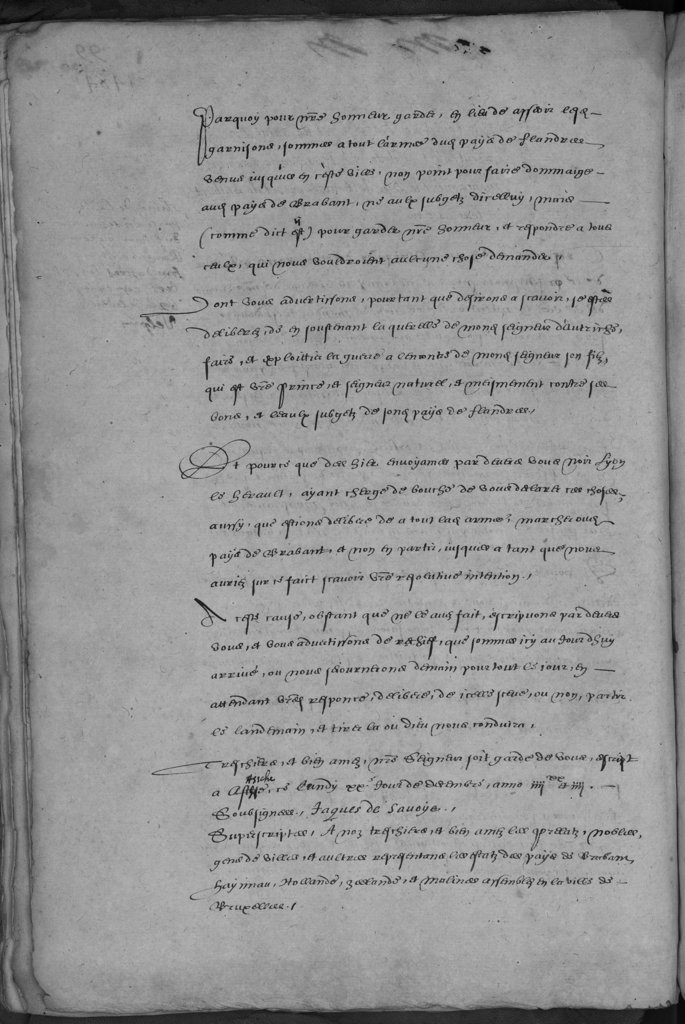 Parquoy pour nre honneur garder, en lieu de asseoir lesd
garnisons, sommes a tout l'armee dud pays de flandres
venus jusques en ceste ville, non point pour faire dommaige
aud pays de Brabant, ne aulx subgetz dicelluy, mais
(comme dict est) pour garder nre honneur, et respondre a tous
ceulx, qui nous vouldroient aulcune chose demander,
Dont vous advertissons, pourtant que desirons a scavoir, se estes
deliberez, de en soustenant la querelle de mons seigneur d'autriche,
faire, et exploictier la guerre a lencontre de mons seigneur son filz,
qui est vre Prince, et seigneur naturel, et mesmement contre ses
bons, et leaulx subgetz de sond pays de flandres,
Et pource que des hier envoyames par devers vous lyon
le herault, ayant cherge de bouche de vous declarer ces choses,
aussy, que estions delibere de a tout lad armee marcher oud
pays de Brabant, et non en partir, jusques a tant que nous
auriez sur ce faict scavoir vre resolutive intention,
A ceste cause, obstant que ne le avez fait, escripvons par devers
vous, et vous advertissons de rechief, que sommes icy au jourdhuy
arrive, ou nous sejournerons demain pour tout le jour, en
attendant vred responce, delibere, de icelle sceue, ou non, partir
le landemain, et tirer la ou dieu nous conduira,
Treschiers, et bien amez, nre Seigneur soit garde de vous, escript
Assche
a ce Lundy xxe Jour de decembre, anno iiiixx et iiii.
Soubsignees, Jaques de Savoye,
Superscriptes, A noz treschiers, et bien amez les prelatz, nobles,
gens de villes, et aultres representans les estatz des pays de Brabant,
haynnau, Hollande, zeelande, et malines assemblez en la ville de
Bruxelles,